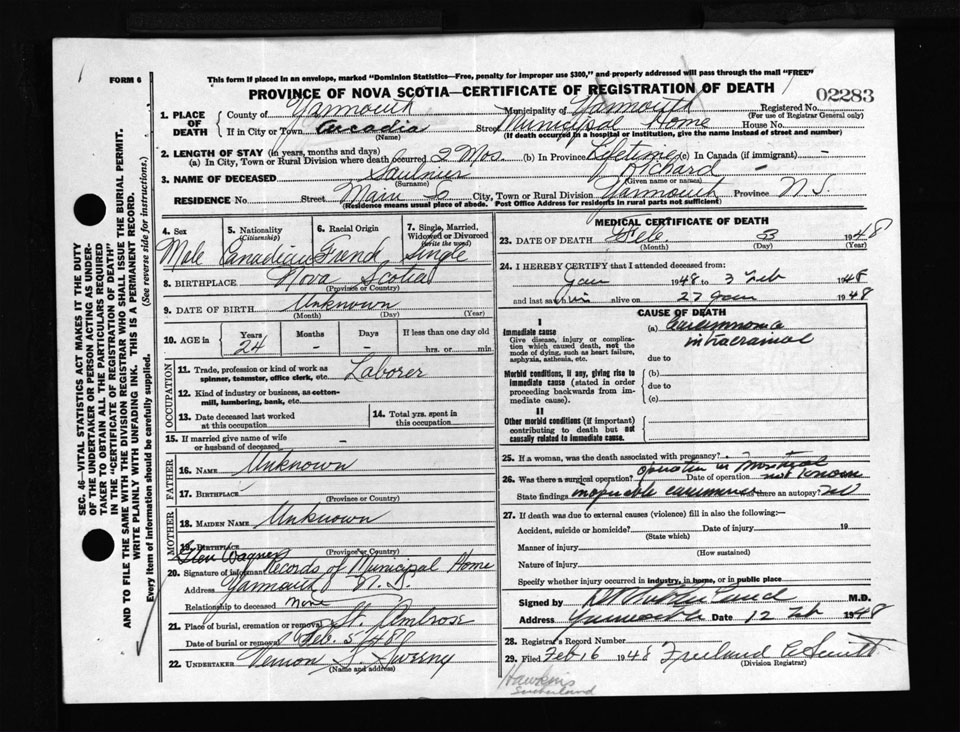 FORM 6
This form if placed in an envelope, marked "Dominion Statistics—Free, penalty for improper use $300," and properly addressed will pass through the mail "FREE"
PROVINCE OF NOVA SCOTIA—CERTIFICATE OF REGISTRATION OF DEATH
02283
1. PLACE OF DEATH
County of Yarmouth Municipality of Yarmouth Registered No.
(For use of Registrar General only)
If in City or Town Arcadia Street Municipal Home House No.
(Name) (If death occurred in a hospital or institution, give the name instead of street and number)
2. LENGTH OF STAY (in years, months and days)
(a) In City, Town or Rural Division where death occurred 2 Mos. (b) In Province Lifetime (c) In Canada (if immigrant) -
3. NAME OF DECEASED Saulnier Richard
(Surname) (Given name or names)
RESIDENCE No. Street Main S City, Town or Rural Division Yarmouth Province N.S.
(Residence means usual place of abode. Post Office Address for residents in rural parts not sufficient)
4. Sex
Male
5. Nationality
(Citizenship)
Canadian
6. Racial Origin
French
7. Single, Married, Widowed or Divorced
(write the word)
Single
8. BIRTHPLACE Nova Scotia
(Province or Country)
9. DATE OF BIRTH Unknown
(Month) (Day) (Year)
10. AGE in
Years Months Days If less than one day old
24 - - hrs. or min.
OCCUPATION
11. Trade, profession or kind of work as spinner, teamster, office clerk, etc. Laborer
12. Kind of industry or business, as cotton-mill, lumbering, bank, etc.
13. Date deceased last worked at this occupation
14. Total yrs. spent in this occupation
15. If married give name of wife or husband of deceased -
FATHER
16. NAME Unknown
17. BIRTHPLACE
(Province or Country)
MOTHER
18. MAIDEN NAME Unknown
19. BIRTHPLACE
(Province or Country)
Glen Wagner
20. Signature of informant Records of Municipal Home
Address Yarmouth N.S.
Relationship to deceased none
21. Place of burial, cremation or removal St. Ambrose
Date of burial or removal Feb. 5/48
22. UNDERTAKER Vernon S. Sweeny
(Name and address)
MEDICAL CERTIFICATE OF DEATH
23. DATE OF DEATH Feb 3 1948
(Month) (Day) (Year)
24. I HEREBY CERTIFY that I attended deceased from:
Jan 1948 to 3 Feb 1948
and last saw him alive on 27 Jan 1948
CAUSE OF DEATH
I
Immediate cause
Give disease, injury or complication which caused death, not the mode of dying, such as heart failure, asphyxia, asthenia, etc.
(a) Carcinoma
intracranial
due to
Morbid conditions, if any, giving rise to immediate cause (stated in order proceeding backwards from immediate cause).
(b)
due to
(c)
II
Other morbid conditions (if important) contributing to death but not causally related to immediate cause.
25. If a woman, was the death associated with pregnancy?
26. Was there a surgical operation? operation in Montreal Date of operation not known
State findings inoperable carcinoma Was there an autopsy? no
27. If death was due to external causes (violence) fill in also the following:—
Accident, suicide or homicide? Date of injury 19
(State which)
Manner of injury
(How sustained)
Nature of injury
Specify whether injury occurred in industry, in home, or in public place
Signed by M.D.
Address Yarmouth Date 12 Feb 1948
28. Registrar's Record Number
29. Filed Feb 16 1948 Freeland Smith
(Division Registrar)
Hawkins
Sutherland
SEC. 46—VITAL STATISTICS ACT MAKES IT THE DUTY OF THE UNDERTAKER OR PERSON ACTING AS UNDERTAKER TO OBTAIN ALL THE PARTICULARS REQUIRED IN THE "CERTIFICATE OF REGISTRATION OF DEATH" AND TO FILE THE SAME WITH THE DIVISION REGISTRAR WHO SHALL ISSUE THE BURIAL PERMIT.
WRITE PLAINLY WITH UNFADING INK. THIS IS A PERMANENT RECORD.
Every item of information should be carefully supplied. (See reverse side for instructions.)